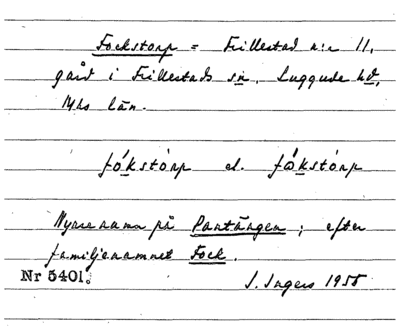 Fockstorp = Frillestad n:r 11,
gård i Frillestads sn. Luggude hd,
Mhs län.
fókstòrp el. fåkstòrp
Nyare namn på Pantängen; efter
familjenamnet Fock.
Nr 5401. J. Ingers 1955